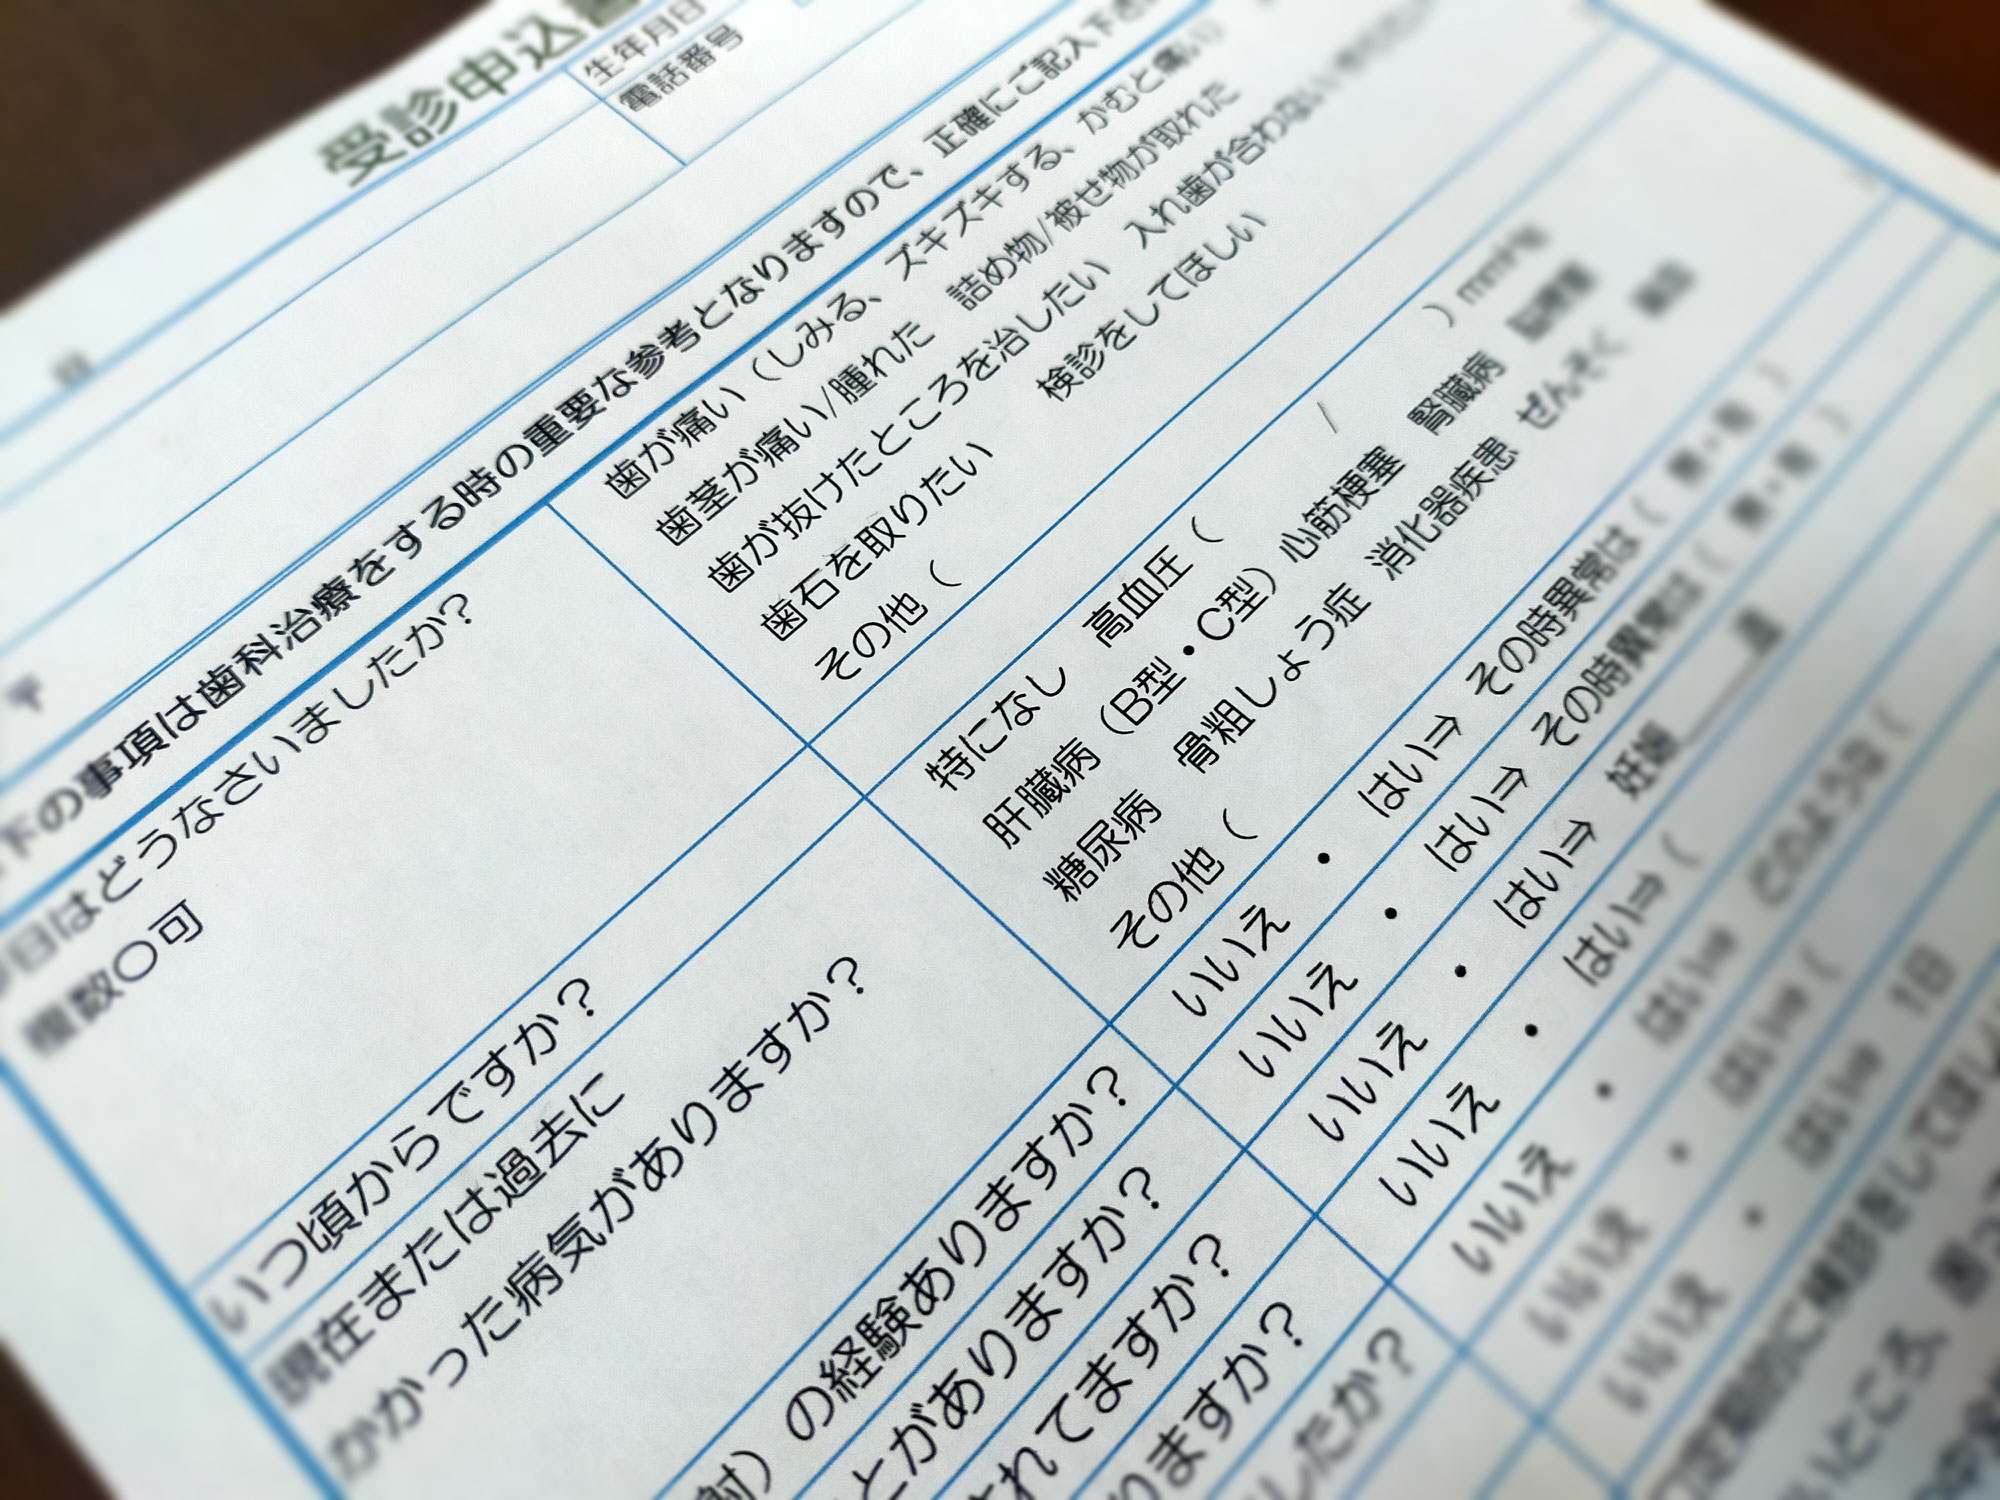 受診申込書
生年月日
電話番号
〒
下の事項は歯科治療をする時の重要な参考となりますので、正確にご記入下さ
日はどうなさいましたか？
複数〇可
歯が痛い（しみる、ズキズキする、かむと痛い）
歯茎が痛い/腫れた 詰め物/被せ物が取れた
歯が抜けたところを治したい 入れ歯が合わない
歯石を取りたい 検診をしてほしい
その他（
いつ頃からですか？
現在または過去に
かかった病気がありますか？
特になし 高血圧（ / ）mmHg
肝臓病（B型・C型）心筋梗塞 腎臓病
糖尿病 骨粗しょう症 消化器疾患 ぜんそく
その他（
射）の経験ありますか？ いいえ ・ はい⇒ その時異常は（ 無・有 ）
とがありますか？ いいえ ・ はい⇒ その時異常は（ 無・有 ）
されてますか？ いいえ ・ はい⇒ 妊娠
りますか？ いいえ ・ はい⇒（
したか？ いいえ ・ はい⇒ どのような（
いいえ ・ はい⇒（
いいえ ・ はい⇒ 1日
定期的に検診をしてほし
いところ、